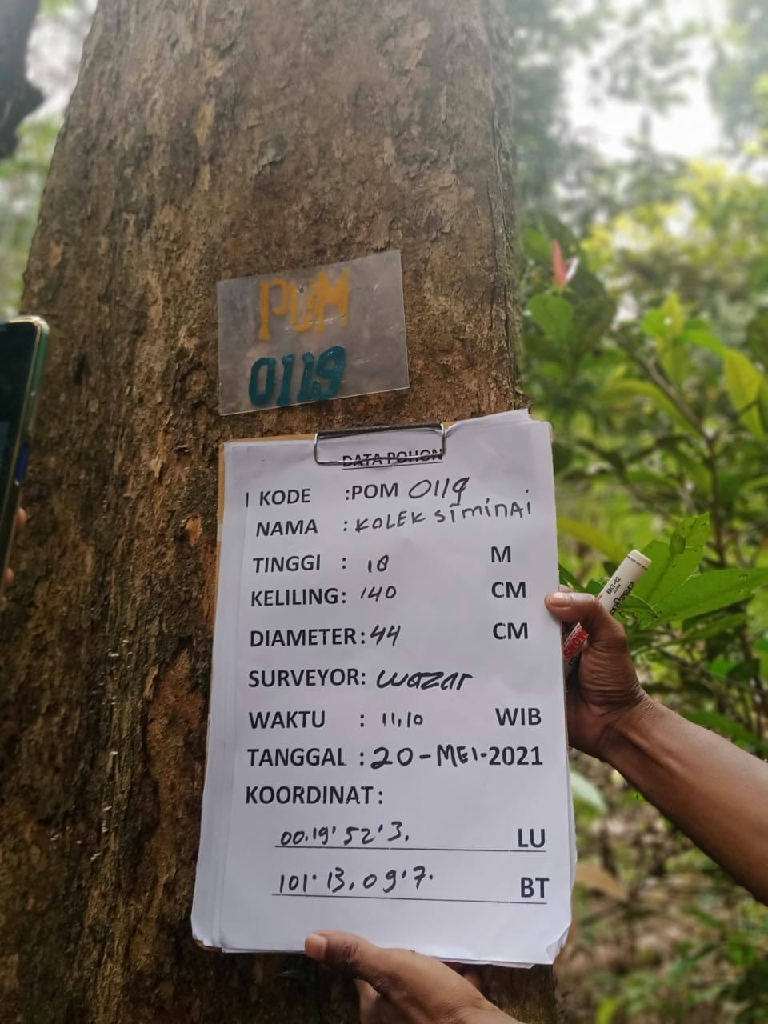 PUM
0119
DATA POHON
KODE :POM 0119
NAMA : KOLEK SIMINAI
TINGGI : 18 M
KELILING: 140 CM
DIAMETER: 44 CM
SURVEYOR: wazar
WAKTU : 11,10 WIB
TANGGAL : 20-MEI-2021
KOORDINAT:
00.19'52'3. LU
101'13.09'7. BT